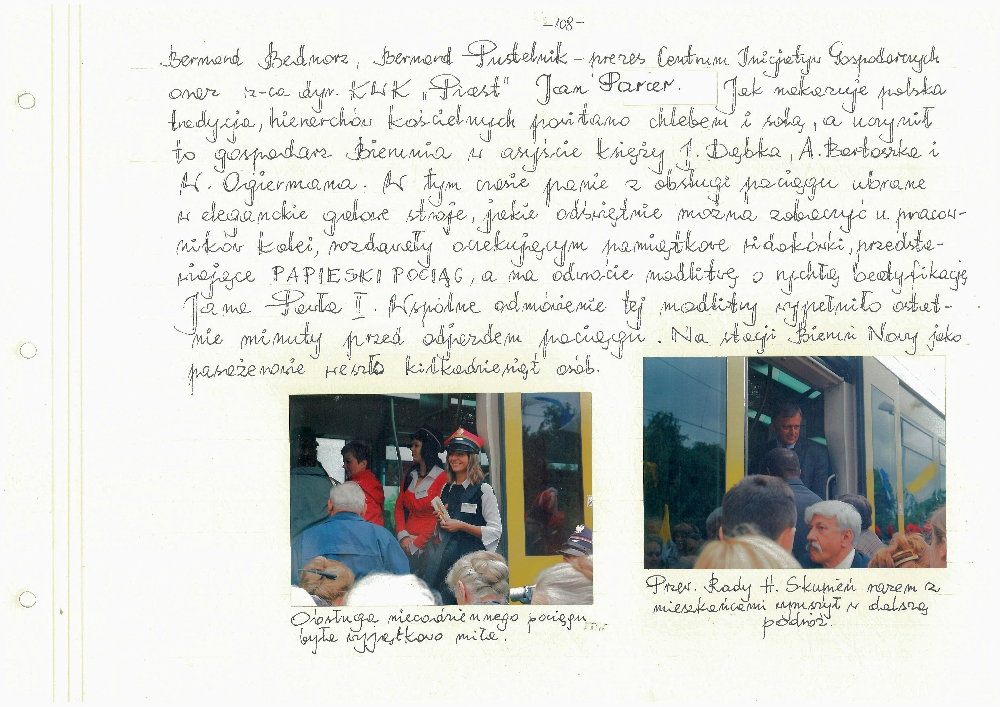 -108-
Bernard Bednorz, Bernard Pustelnik - prezes Centrum Inicjatyw Gospodarczych
oraz z-ca dyr. KWK "Piast" Jan Parcer. Jak nakazuje polska
tradycja, hierarchów kościelnych powitano chlebem i solą, a uczynił
to gospodarz Bierunia w asyście księży J. Dębka, A. Bartoszka i
W. Ogiermana. W tym czasie panie z obsługi pociągu ubrane
w eleganckie galowe stroje, jakie odświętnie można zobaczyć u pracow-
ników kolei, rozdawały oczekującym pamiątkowe widokówki, przedsta-
wiające PAPIESKI POCIĄG, a na odwrocie modlitwę o rychłą beatyfikację
Jana Pawła II. Wspólne odmówienie tej modlitwy wypełniło ostat-
nie minuty przed odjazdem pociągu. Na stacji Bieruń Nowy jako
pasażerowie weszło kilkadziesiąt osób.
Obsługa niecodziennego pociągu
była wyjątkowo miła.
Przew. Rady H. Skupień razem z
mieszkańcami wyruszył w dalszą
podróż.